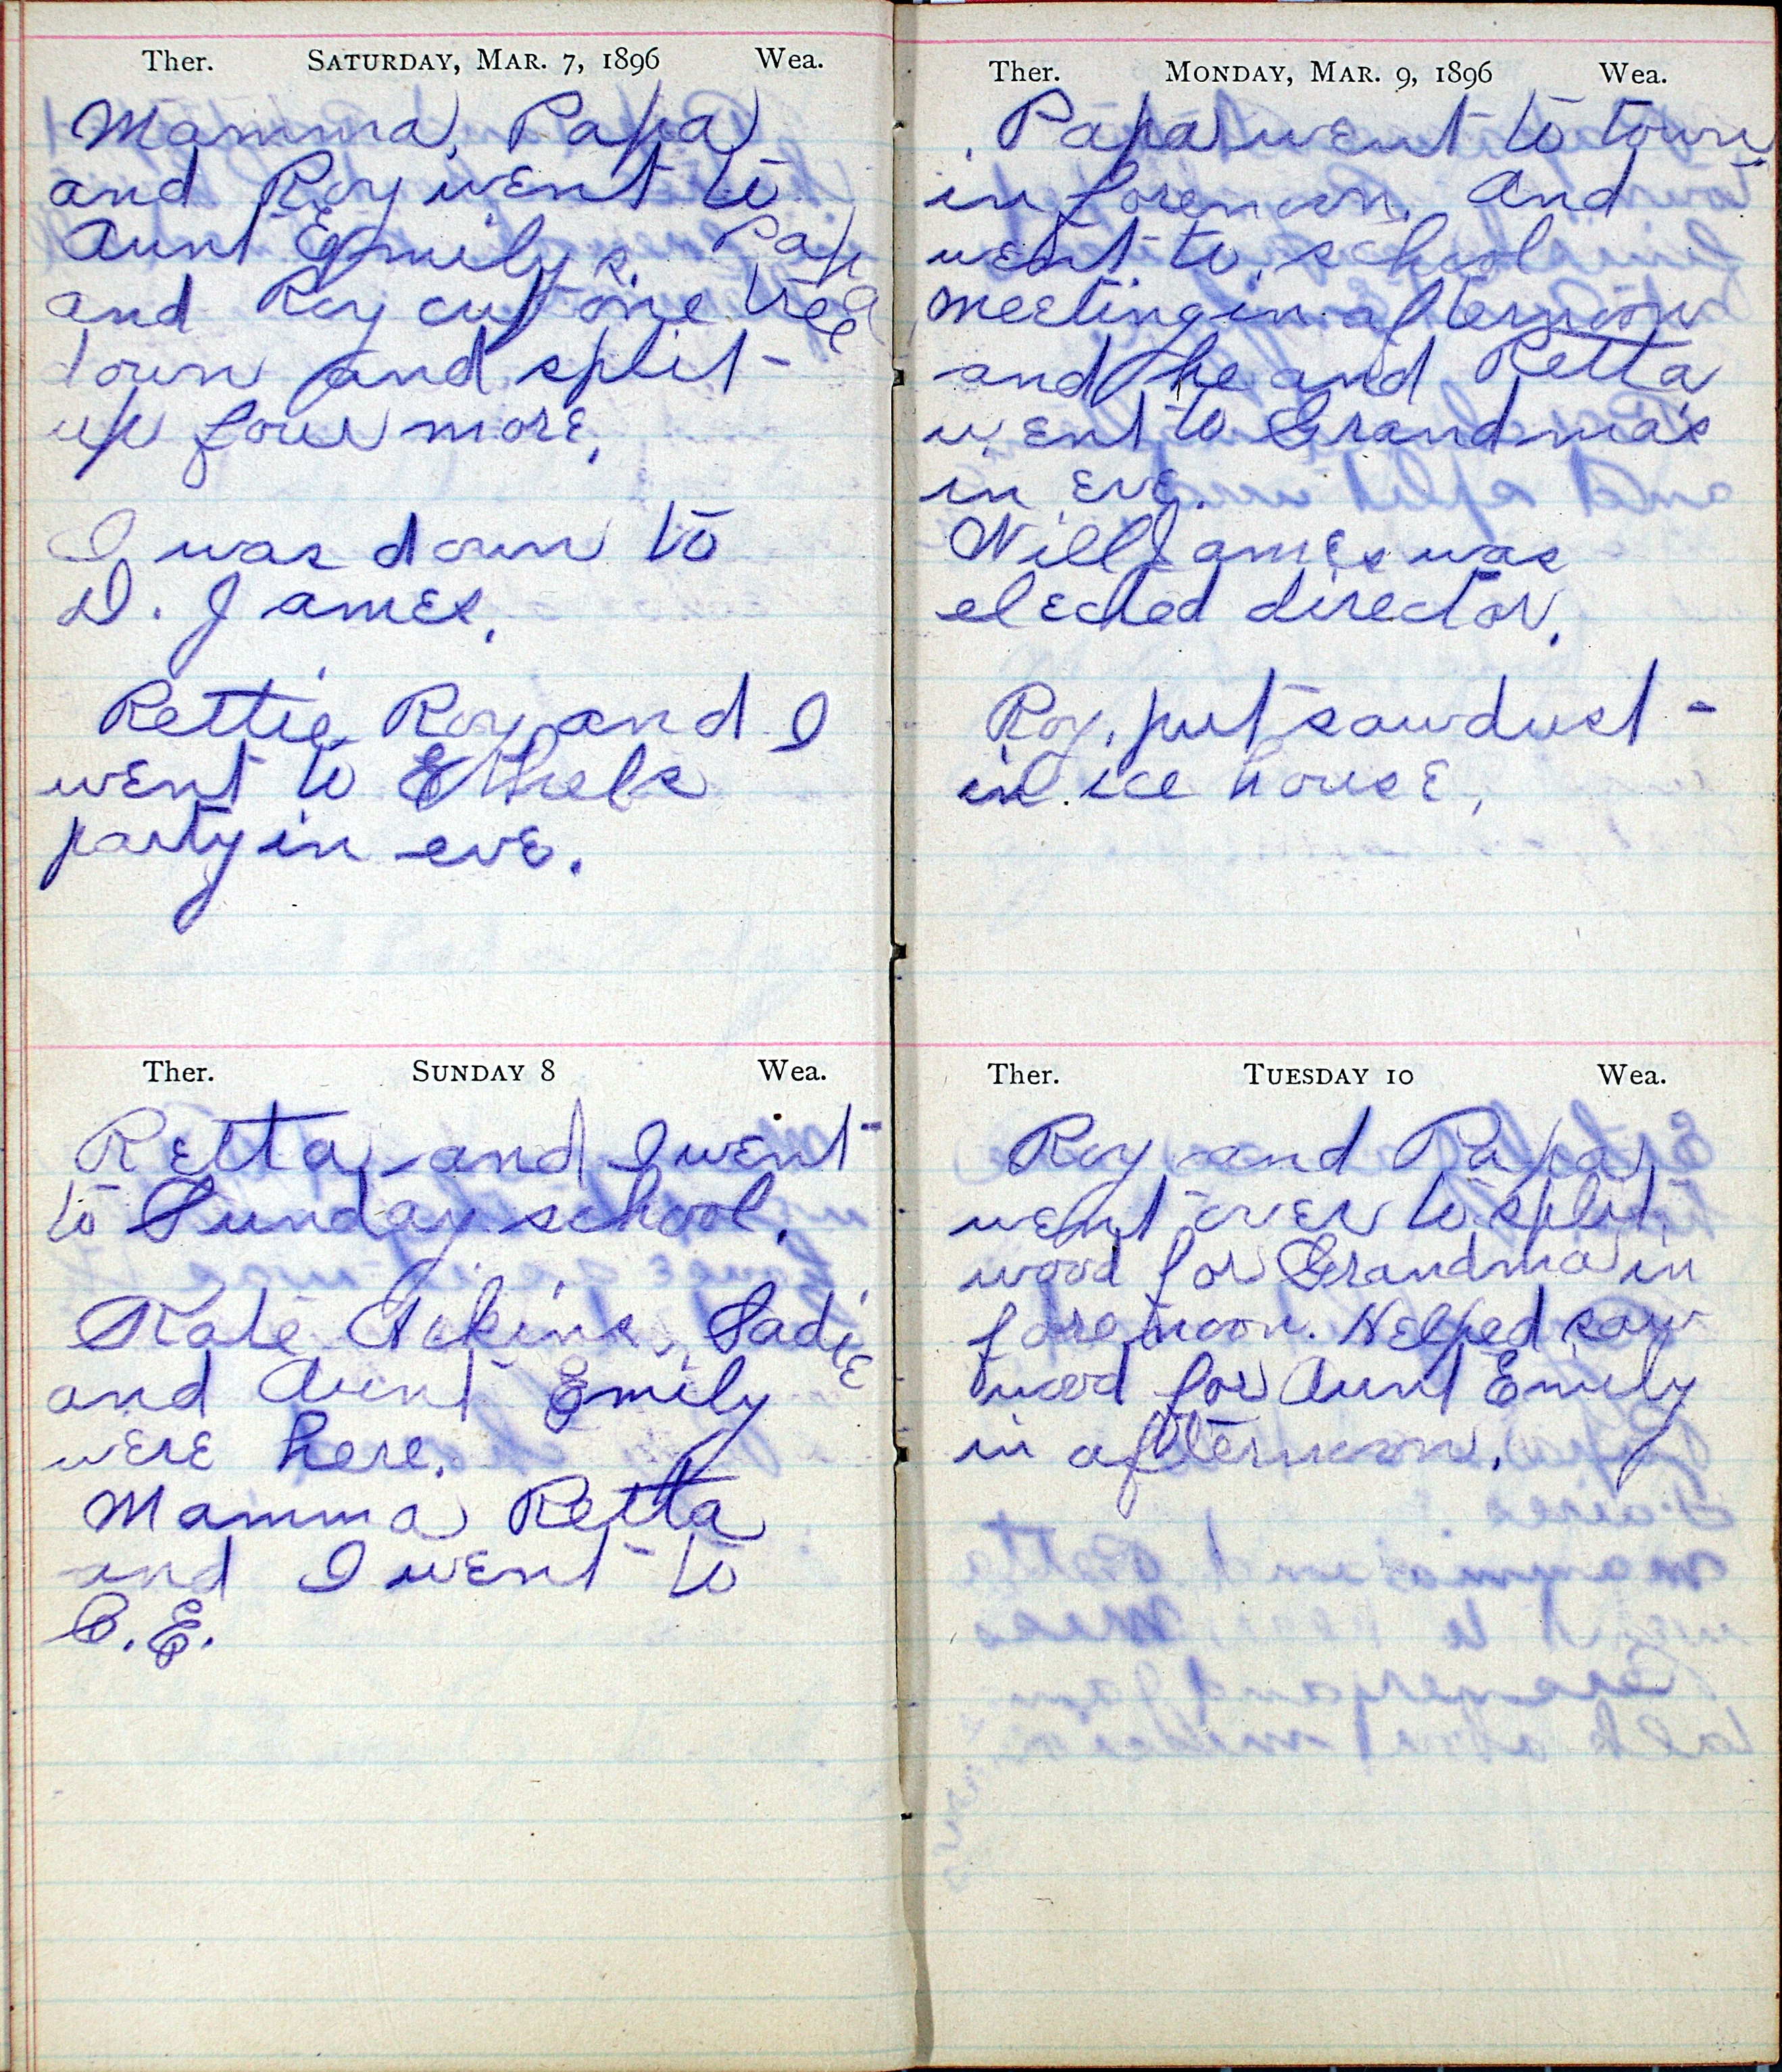 Ther. SATURDAY, MAR. 7, 1896 Wea.
Mamma, Papa
and Roy went to
Aunt Emilys. Papa
and Roy cut one tree
down and split
up four more.
I was down to
D. James.
Rettie Roy and I
went to Ethels
party in eve.
Ther. SUNDAY 8 Wea.
Retta and I went
to Sunday school.
Kate Ackins, Sadie
and Aunt Emily
were here.
Mamma Retta
and I went to
C.E.
Ther. MONDAY, MAR. 9, 1896 Wea.
Papa went to town
in forenoon. And
went to school
meeting in afternoon
and he and Retta
went to Grandma's
in eve.
Will James was
elected director.
Roy put sawdust
in ice house.
Ther. TUESDAY 10 Wea.
Roy and Papa
went over to split
wood for Grandma in
forenoon. Helped saw
wood for Aunt Emily
in afternoon.